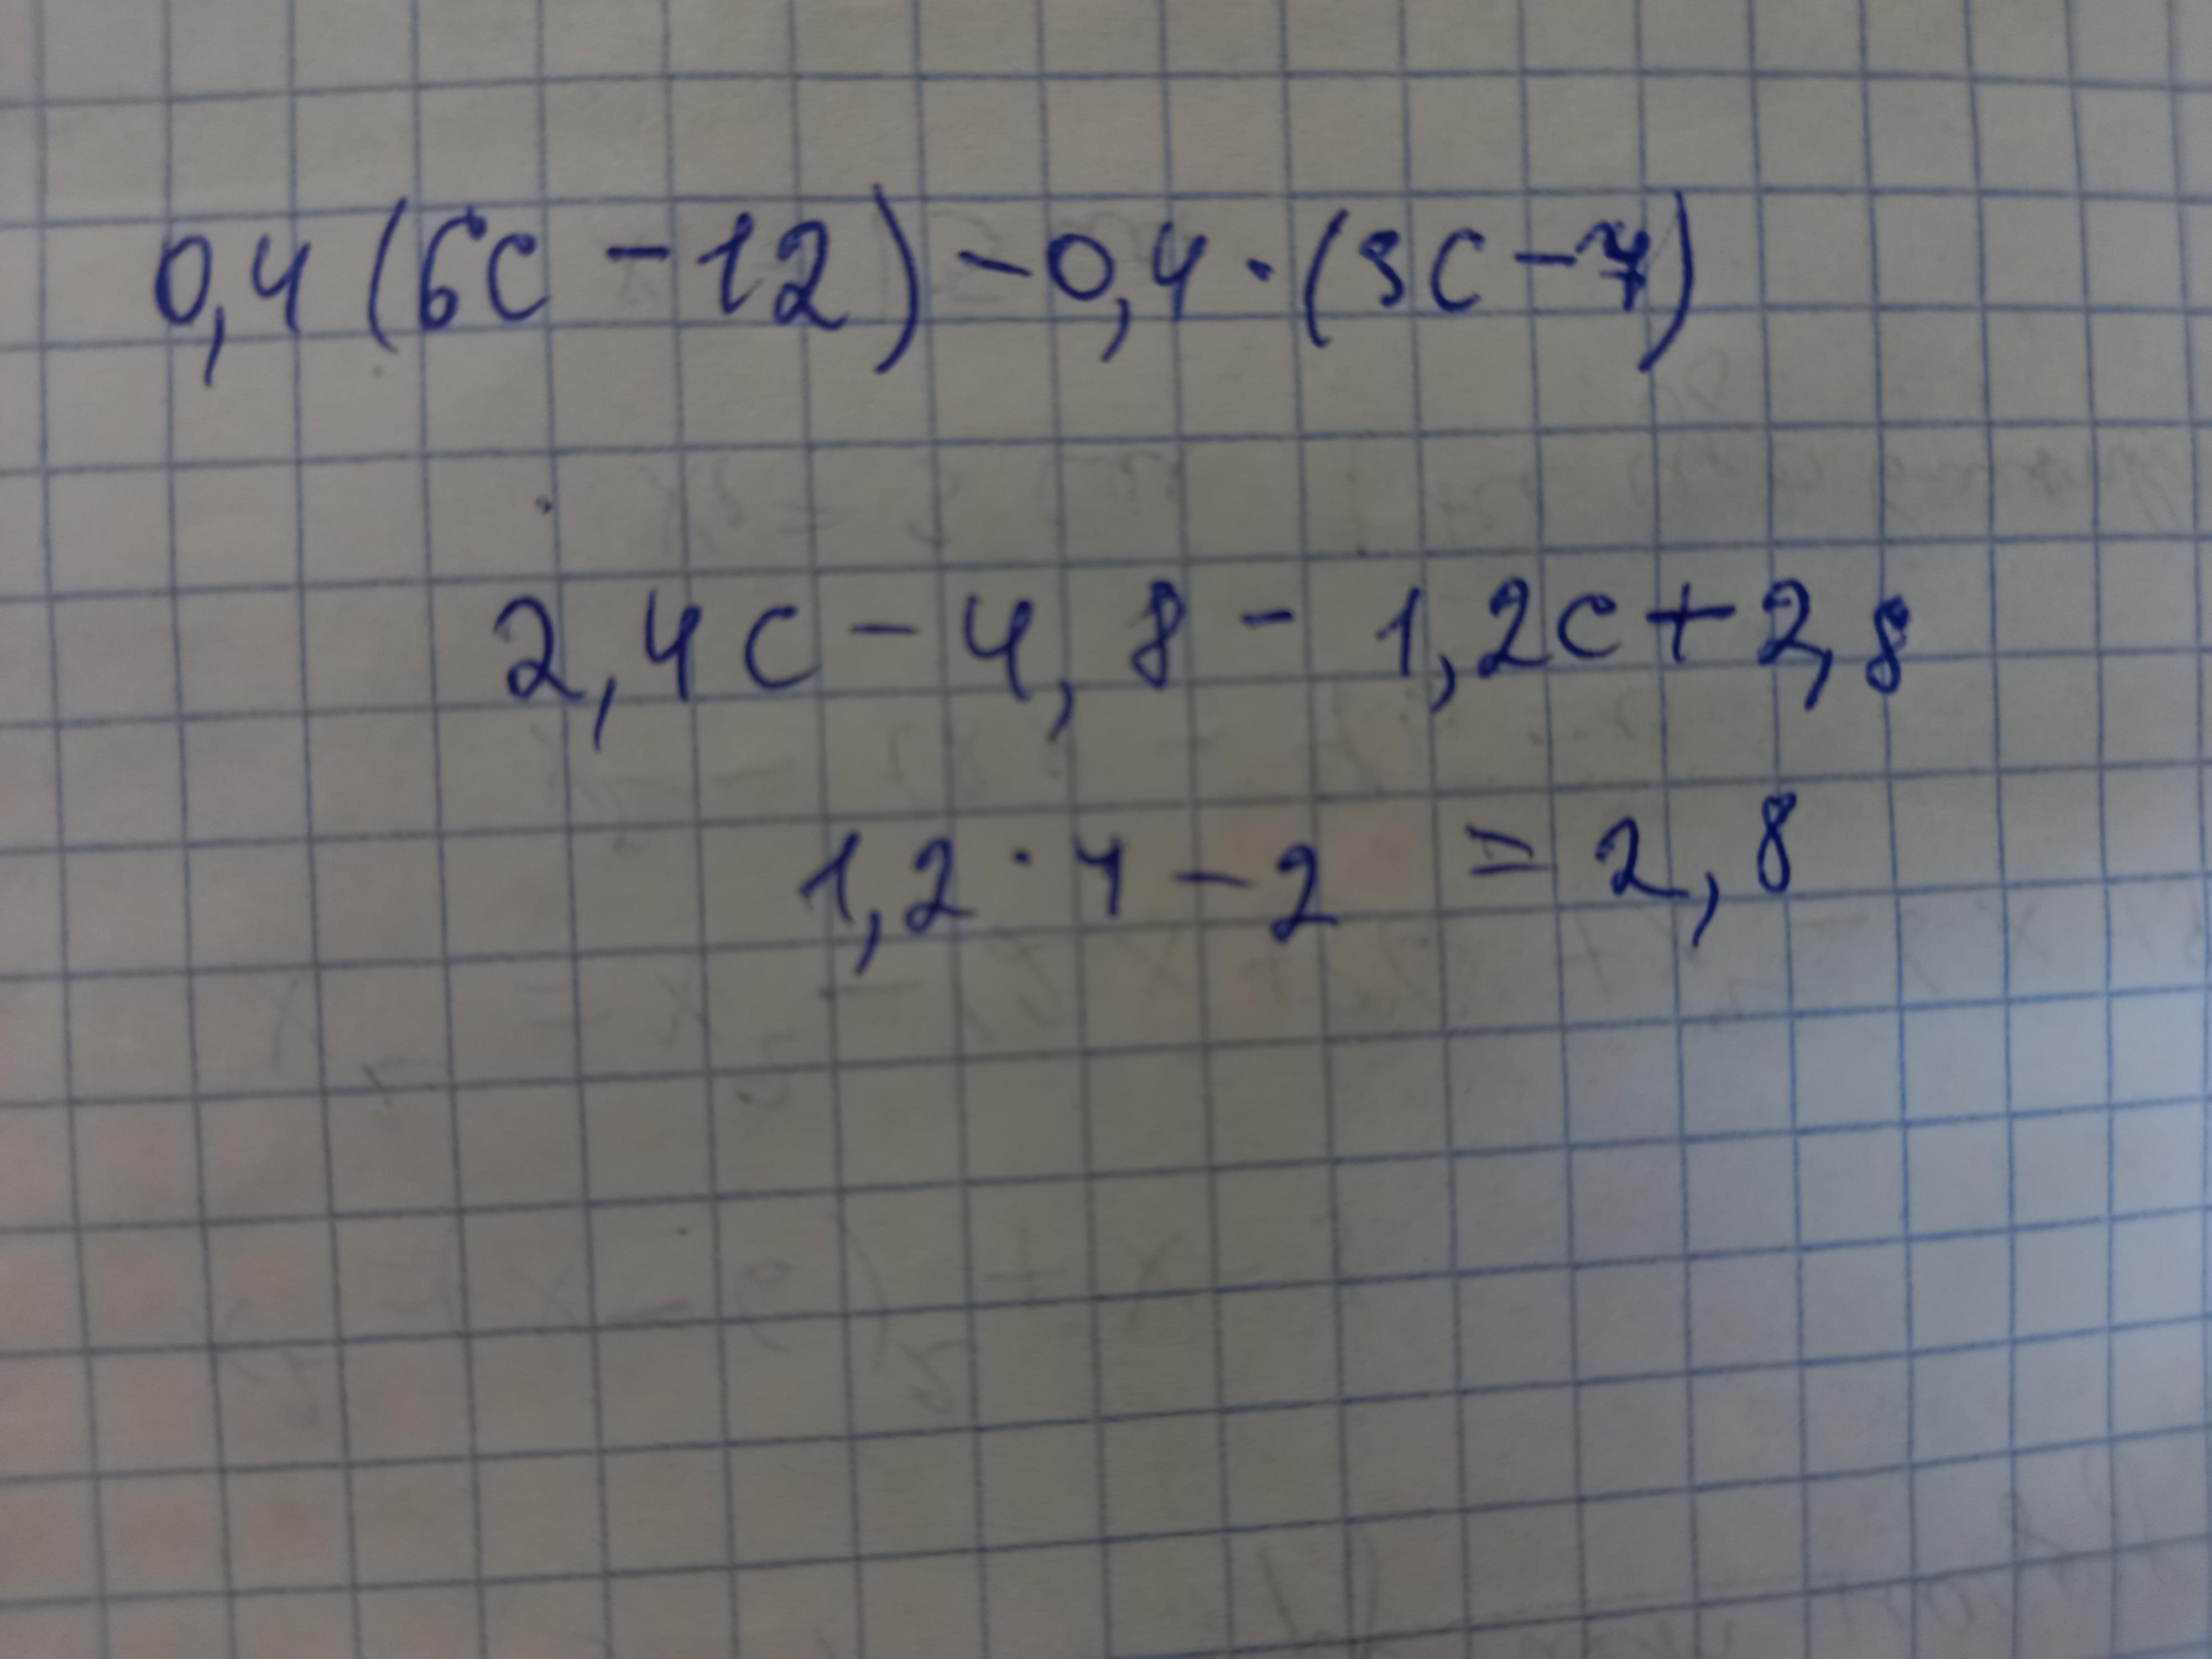 0,4 (6c - 12) - 0,4 · (3c - 7)
2,4c - 4,8 - 1,2c + 2,8
1,2 · 4 - 2 = 2,8